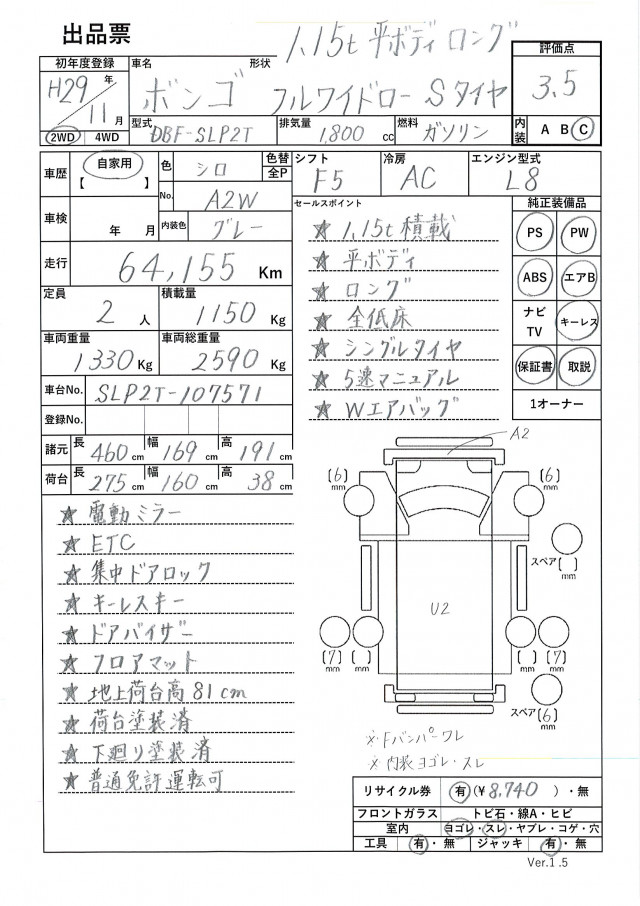 出品票
1.15t 平ボディ ロング
初年度登録
H29年
11月
2WD 4WD
車名 形状
ボンゴ フルワイドロー Sタイヤ
型式 DBF-SLP2T
排気量 1,800 cc
燃料 ガソリン
評価点
3.5
内装 A B C
車歴 自家用
【 】
色 シロ
色替
全P
No. A2W
内装色 グレー
シフト F5
冷房 AC
エンジン型式 L8
車検 年 月
走行 64,155 Km
定員 2 人
積載量 1150 Kg
車両重量 1330 Kg
車両総重量 2590 Kg
車台No. SLP2T-107571
登録No.
諸元 長 460 cm 幅 169 cm 高 191 cm
荷台 長 275 cm 幅 160 cm 高 38 cm
セールスポイント
★ 1.15t 積載
★ 平ボディ
★ ロング
★ 全低床
★ シングルタイヤ
★ 5速マニュアル
★ Wエアバッグ
純正装備品
PS PW
ABS エアB
ナビ
TV
キーレス
保証書 取説
1オーナー
★ 電動ミラー
★ ETC
★ 集中ドアロック
★ キーレスキー
★ ドアバイザー
★ フロアマット
★ 地上荷台高 81cm
★ 荷台塗装済
★ 下廻り塗装済
★ 普通免許運転可
A2
(6) mm
(6) mm
スペア( ) mm
U2
(7) mm
( ) mm
( ) mm
(7) mm
スペア(6) mm
※ Fバンパーワレ
※ 内装ヨゴレ・スレ
リサイクル券 有 (¥8,740 )・無
フロントガラス トビ石・線A・ヒビ
室内 ヨゴレ・スレ・ヤブレ・コゲ・穴
工具 有・無 ジャッキ 有・無
Ver.1.5